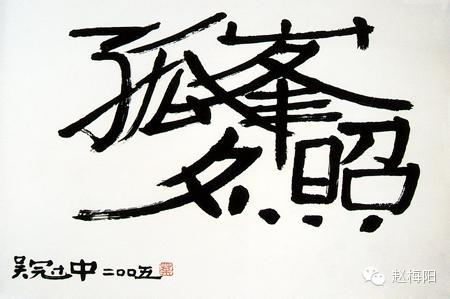 孤峯
夕照
吴冠中 二〇〇五
赵梅阳